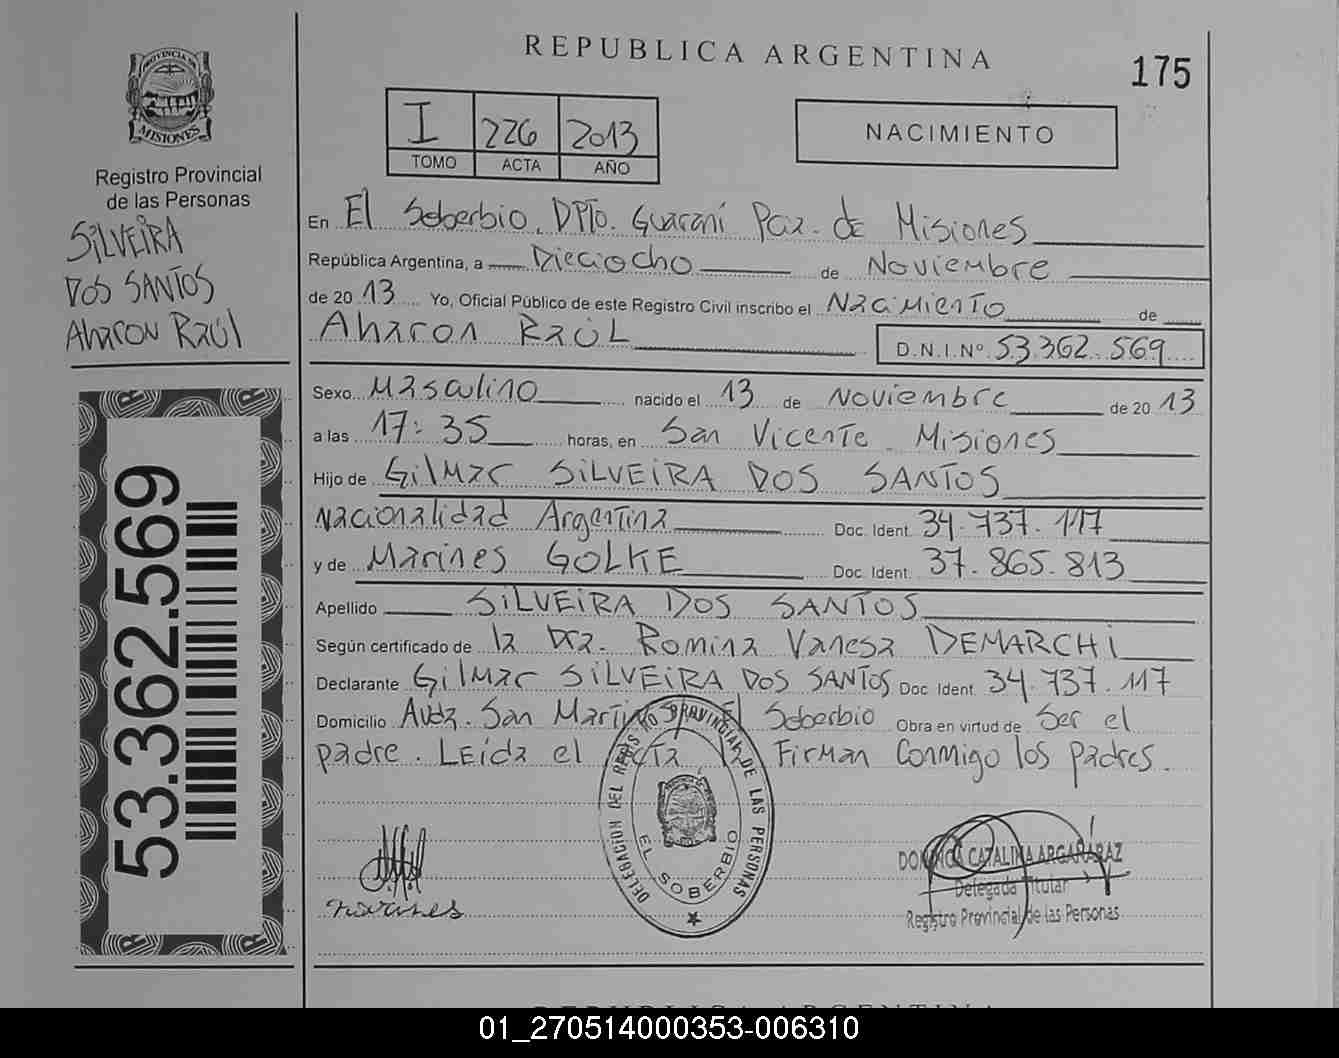 PROVINCIA DE
MISIONES
Registro Provincial
de las Personas
SiLVEiRA
DOS SANTOS
Aharon Raúl
53.362.569
REPUBLICA ARGENTINA
175
I 226 2013
TOMO ACTA AÑO
NACIMIENTO
En El Soberbio, DPTo. Guaraní Pcia. de Misiones
República Argentina, a Dieciocho de Noviembre
de 2013 Yo, Oficial Público de este Registro Civil inscribo el Nacimiento de
Aharon RaÚL D.N.I.Nº 53.362.569
Sexo Masculino nacido el 13 de Noviembre de 2013
a las 17:35 horas, en San Vicente Misiones
Hijo de Gilmar SiLVEiRA DOS SANTOS
Nacionalidad Argentina Doc. Ident. 34.737.117
y de Marines GOLKE Doc. Ident. 37.865.813
Apellido SiLVEiRA DOS SANTOS
Según certificado de la Dra. Romina Vanesa DEMARCHi
Declarante Gilmar SiLVEiRA DOS SANTOS Doc. Ident. 34.737.117
Domicilio Avda. San Martin El Soberbio Obra en virtud de Ser el
padre. Leida el acta, Firman Conmigo los padres.
DELEGACION DEL REGISTRO PROVINCIAL DE LAS PERSONAS
EL SOBERBIO
marines
DOMINGA CATALINA ARGAÑARAZ
Delegada Titular
Registro Provincial de las Personas
REPUBLICA ARGENTINA
01_270514000353-006310